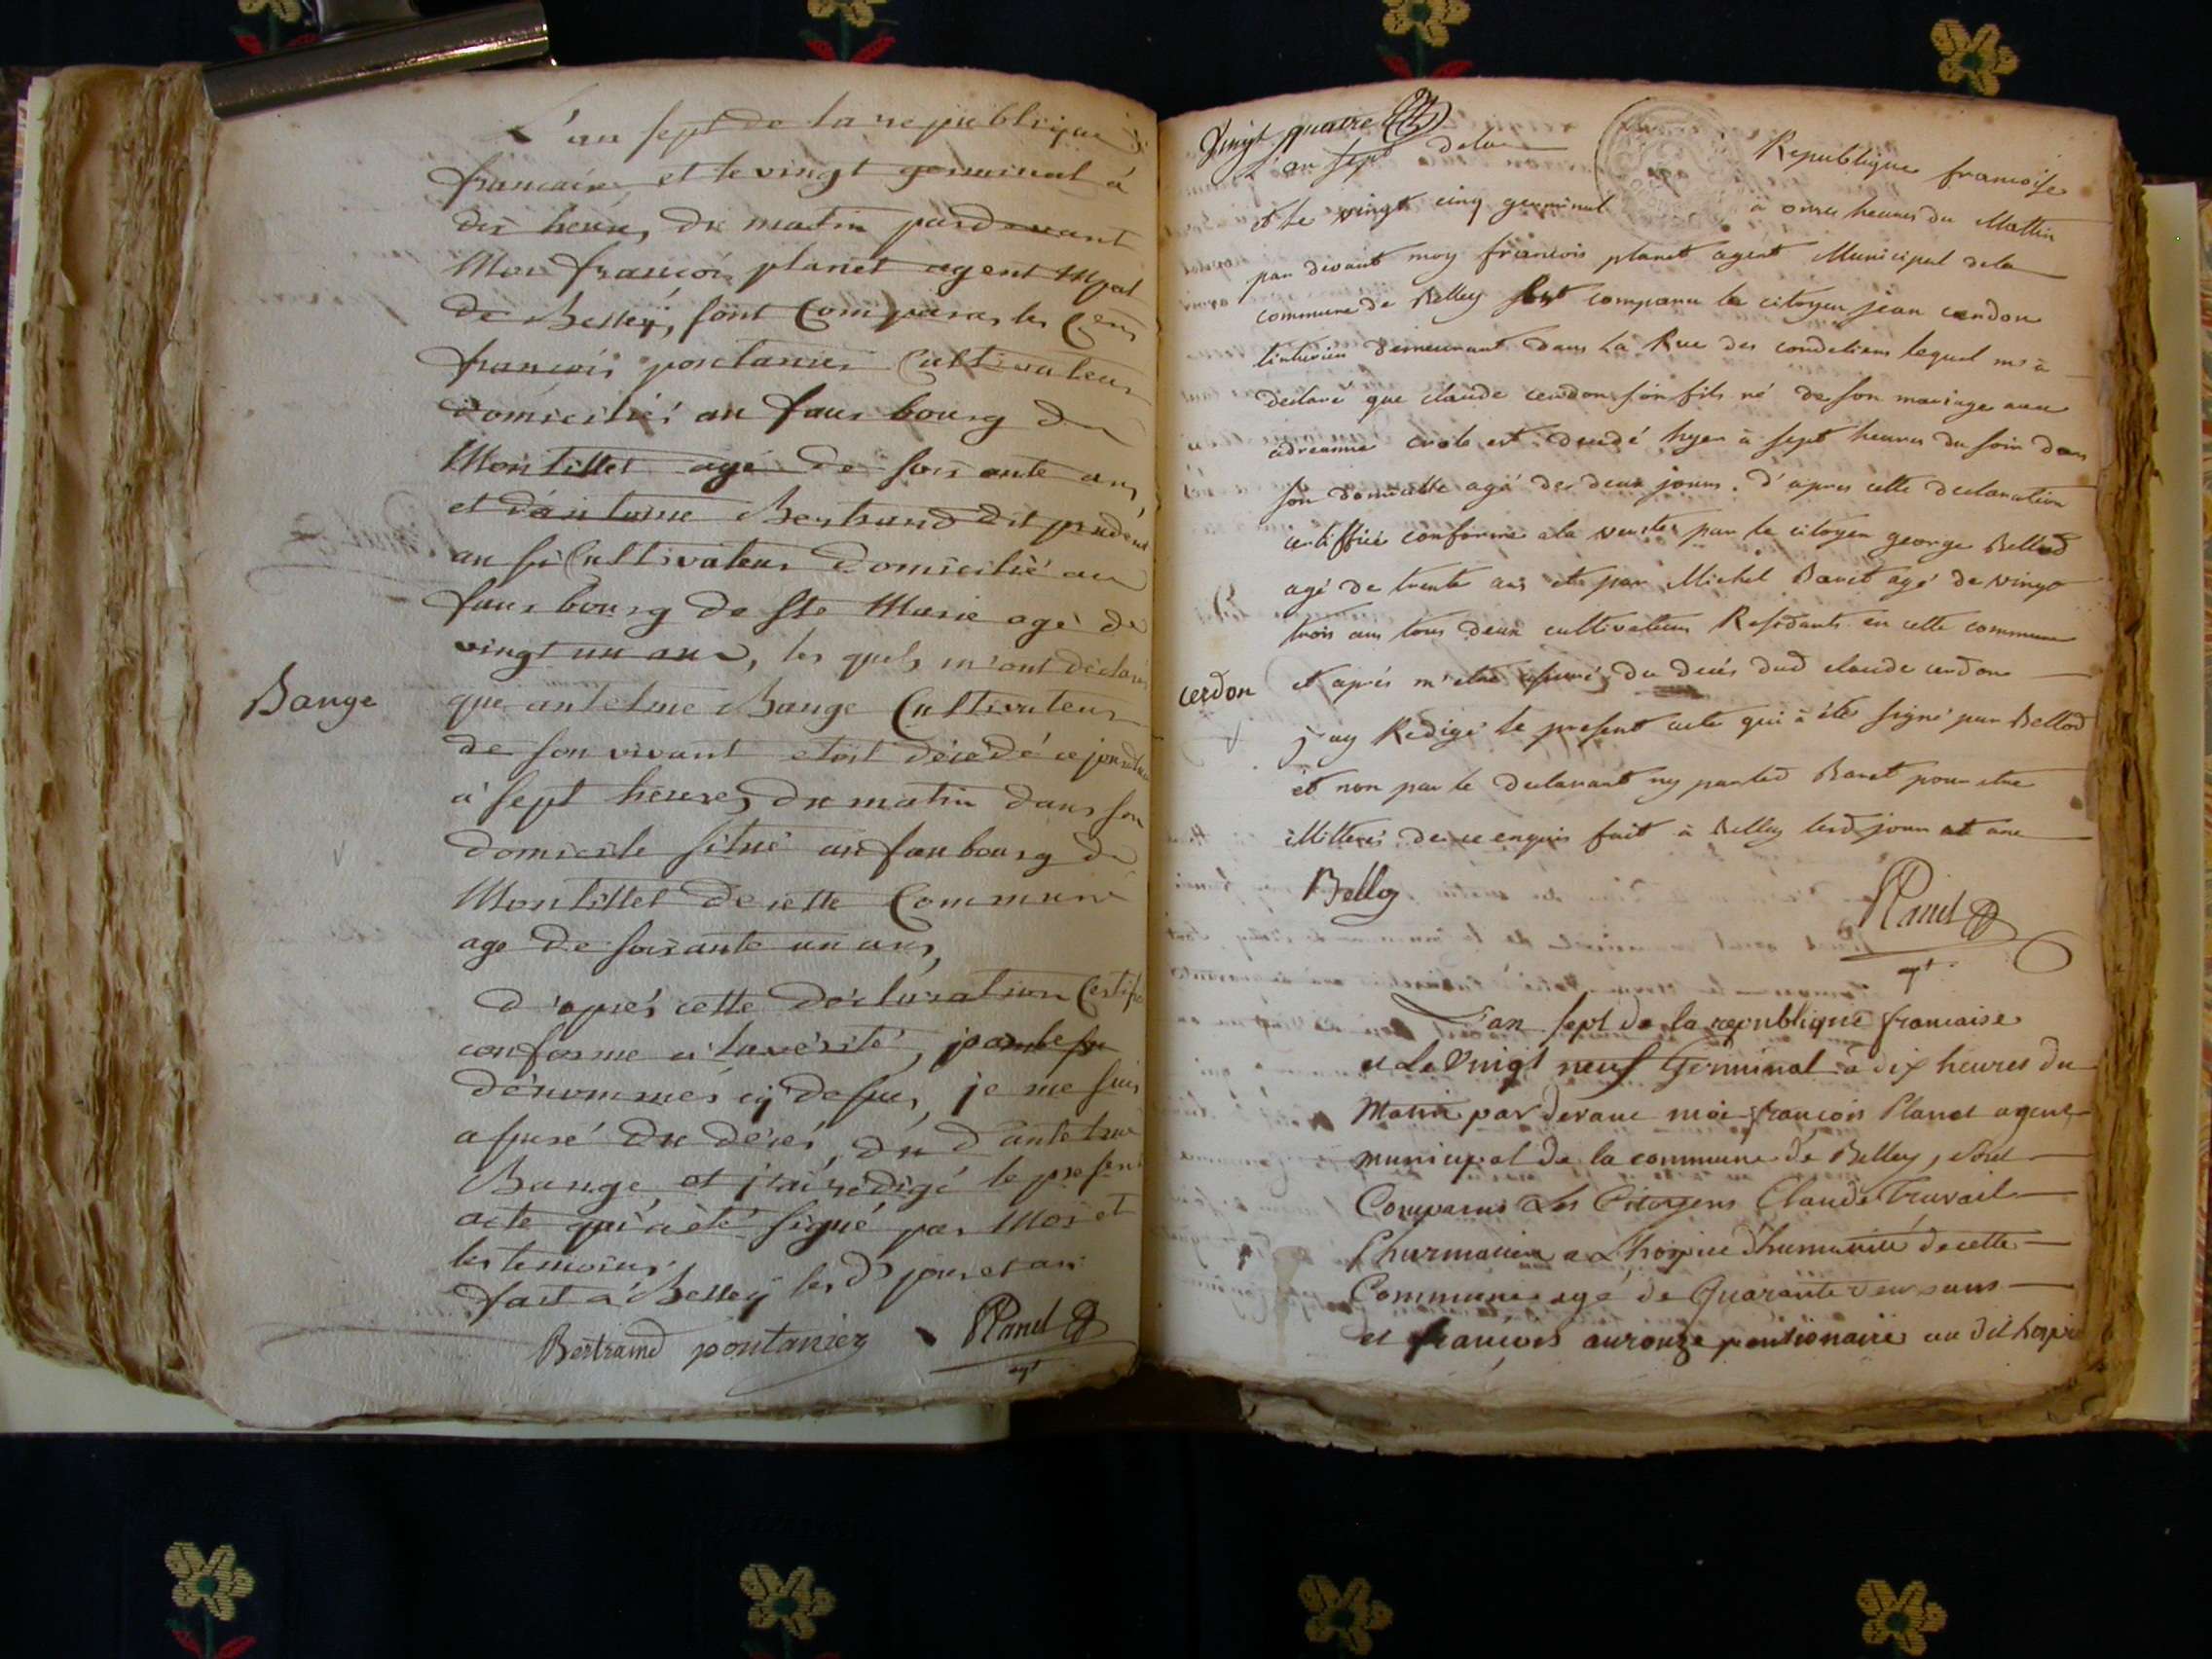 L'an sept de la republique
francaise et le vingt germinal à
dix heures du matin pardevant
Moi françois planet agent Mpal
de Belley, sont Comparus les Cens
francois pontanier Cultivateur
domicilié au faux bourg du
Montillet agé de soixante ans
et d'antoine Bertrand dit prudent
aussi Cultivateur domicilié au
faux bourg de Ste Marie agé de
vingt un ans, les quels m'ont déclaré
Bange
que antelme Bange Cultivateur
de son vivant etoit décédé ce jourdhui
a sept heures du matin dans son
domicile situé au faubourg de
Montillet de cette Commune
age de soixante un ans,
d'après cette déclaration Certifié
conforme à la vérité, par les
dénommés cy dessus, je me suis
assuré du décés, du d. antelme
Bange, et j'ai rédigé le present
acte qui a été signé par Moi et
les temoins.
fait à Belley les d. jour et an
Bertrand pontanier Planet
agt
Vingt quatre
L'an sept de la Republique francoise
et le vingt cinq germinal à onze heures du Mattin
par devant moy francois planet agent Municipal de la
commune de Belley est comparu le citoyen jean cerdon
tinturier demeurant dans La Rue des cordeliers lequel m'a
declaré que claude cerdon son fils né de son mariage avec
adreanne est decedé hyer à sept heures du soir dans
son domicille agé de deux jours. d'apres cette declaration
certiffiée conforme a la verite par le citoyen george Bellod
agé de trente ans et par Michel Baret agé de vingt
trois ans tous deux cultivateurs Residants en cette commune
cerdon
et après m'etre assuré du decés dud claude cerdon
j'ay Redigé le present acte qui à été signé par Bellod
et non par le declarant ny par led Baret pour etre
illitterés de ce enquis fait à Belley lesd jour et an
Bellog
Planet
agt
L'an sept de la republique francaise
et Le Vingt neuf Germinal à dix heures du
Matin par devant moi françois Planet agent
municipal de la commune de Belley, Sont
Comparus Les Citoyens Claude Travail
Pharmacien a L'hospice d'humanité de cette
Commune agé de Quarante deux ans
et françois aurouze pentionaire au dit hospice